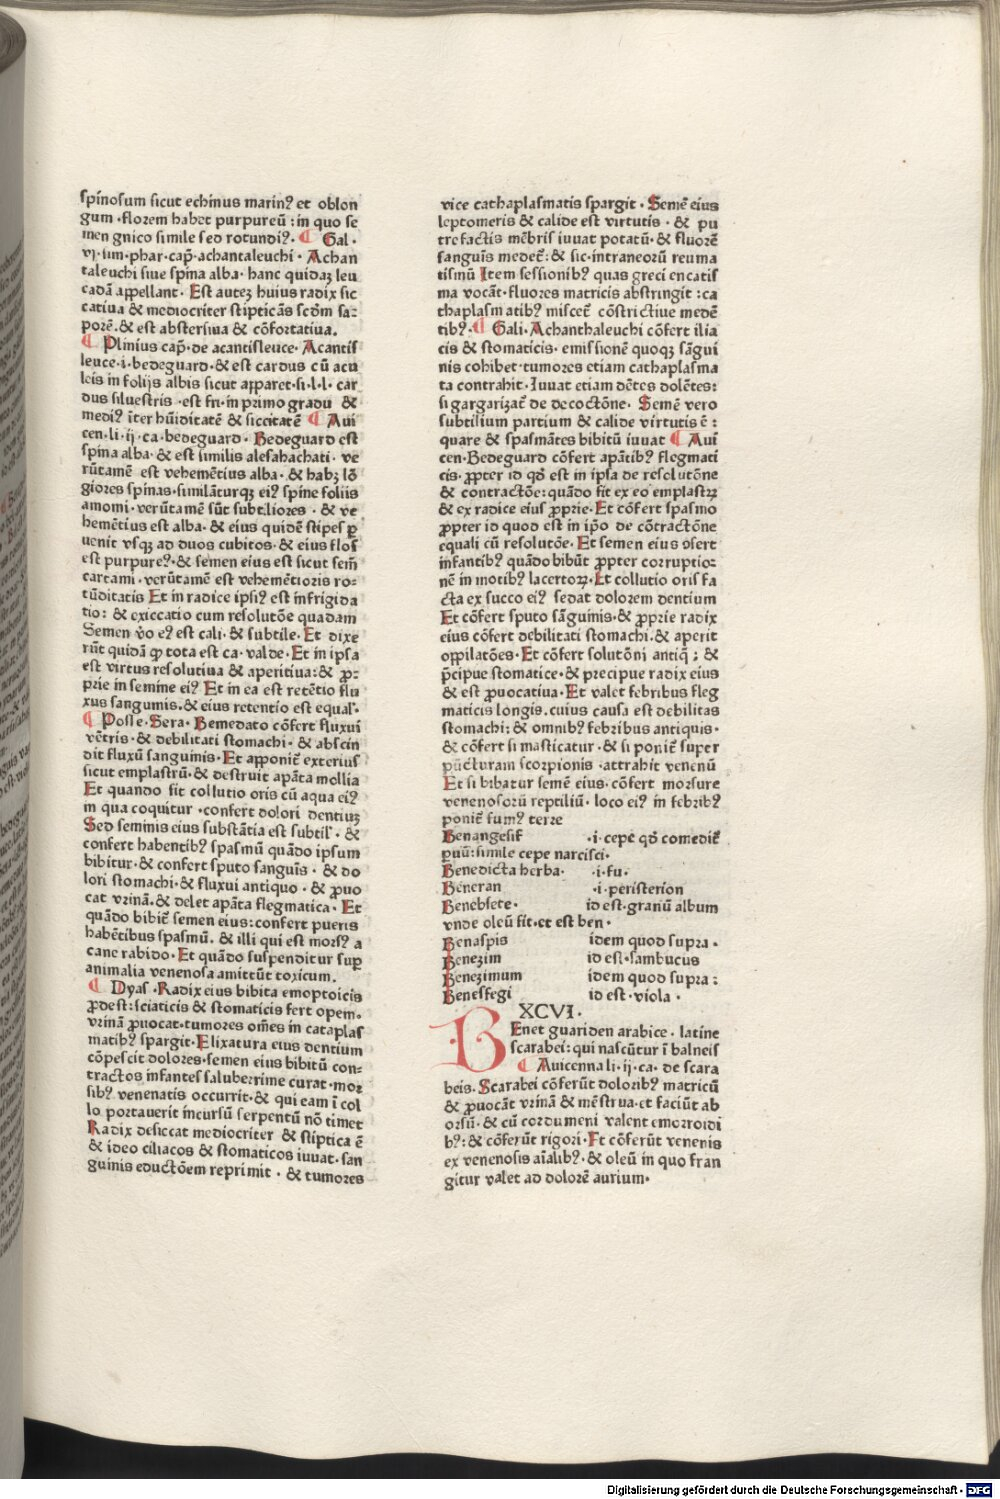 spinosum sicut echinus marinꝰ et oblon
gum ·florem habet purpureū : in quo se
men gnico simile sed rotundiꝰ. ¶ Gal ·
vj· sim· phar· cap̄· achantaleuchi · Achan
taleuchi siue spina alba · hanc quidaꝫ leu
cadā appellant · Est auteꝫ huius radix sic
catiua & mediocriter stipticās scd̄m sa-
porē. & est abstersiua & cōfortatiua.
¶ Plinius cap̄· de acantisleuce· Acantis
leuce ·i· bedeguard· & est cardus cū acu
leis in folijs albis sicut apparet ·si· l· l· car
dus siluestris ·est fri· in primo gradu &
mediꝰ īter hūiditatē & siccitatē ¶ Aui
cen· li· ij· ca· bedeguard · Bedeguard est
spina alba· & est similis alesahachati · ve
rūtamē est vehemētius alba· & habꝫ lō
giores spinas· similāturqꝫ eiꝰ spine foliis
amomi· verūtamē sūt subtiliores · & ve
hemētius est alba· & eius quidē stipes ꝑ
uenit vsqꝫ ad duos cubitos· & eius flos
est purpureꝰ· & semen eius est sicut sem̄
cartami · verūtamē est vehemētioris ro-
tūditatis Et in radice ipsiꝰ est infrigida
tio: & exiccatio cum resolutōe quadam
Semen v̄o eꝰ est cali· & subtile· Et dixe
rūt quidā ꝙ tota est ca· valde· Et in ipsa
est virtus resolutiua & aperitiua: & ꝓ-
prie in semine eiꝰ Et in ea est retētio flu
xus sanguinis. & eius retentio est equal'·
¶ Posse· Sera· Bemedato cōfert fluxui
vētris· & debilitati stomachi· & abscin
dit fluxū sanguinis· Et apponit̄ exterius
sicut emplastrū· & destruit apāta mollia
Et quando fit collutio oris cū aqua eiꝰ
in qua coquitur ·confert dolori dentiuꝫ
Sed seminis eius substātia est subtil'· &
confert habentibꝰ spasmū quādo ipsum
bibitur· & confert sputo sanguīs · & do
lori stomachi· & fluxui antiquo · & ꝓuo
cat vrinā. & delet apāta flegmatica · Et
quādo bibit̄ semen eius: confert pueris
habētibus spasmū. & illi qui est morsꝰ a
cane rabido· Et quādo suspenditur suꝑ
animalia venenosa amittūt toxicum.
¶ Dyas· Radix eius bibita emoptoicis
ꝓdest: sciaticis & stomaticis fert opem.
vrinā ꝓuocat· tumores om̄es in cataplas
matibꝰ spargit· Elixatura eius dentium
cōpescit dolores· semen eius bibitū con-
tractos infantes saluberrime curat· mor
sibꝰ venenatis occurrit· & qui eam ī col
lo portauerit incursū serpentū nō timet
Radix desiccat mediocriter & stiptica ē
& ideo ciliacos & stomaticos iuuat· san
guinis eductōem reprimit · & tumores
vice cathaplasmatis spargit · Semē eius
leptomeris & calide est virtutis · & pu
trefactis mēbris iuuat potatū· & fluorē
sanguīs medet̄: & sic· intraneorū reuma
tismū Item sessionibꝰ quas greci encatis
ma vocāt· fluores matricis abstringit : ca
thaplasmatibꝰ miscet̄ cōstrictiue medē
tibꝰ· ¶ Gali· Achanthaleuchi cōfert ilia
cis & stomaticis· emissionē quoqꝫ sāgui
nis cohibet· tumores etiam cathaplasma
ta contrahit· Iuuat etiam dētes dolētes:
si gargarizat̄ de decoctōne· Semē vero
subtilium partium & calide virtutis ē :
quare & spasmātes bibitū iuuat ¶ Aui
cen· Bedeguard cōfert apātibꝰ flegmati
cis· ꝓpter id qd̄ est in ipsa de resclutōne
& contractōe: quādo fit ex eo emplastꝝ
& ex radice eius ꝓprie· Et cōfert spasmo
ꝓpter id quod est in ip̄o de cōtractōne
equali cū resolutōe· Et semen eius ꝯfert
infantibꝰ quādo bibūt ꝓpter corruptio-
nē in motibꝰ lacertoꝝ· Et collutio oris fa
cta ex succo eiꝰ sedat dolorem dentium
Et cōfert sputo sāguinis· & ꝓprie radix
eius cōfert debilitati stomachi. & aperit
opilatōes· Et cōfert solutōnj antiq̄ ; &
p̄cipue stomatice· & precipue radix eius
& est ꝓuocatiua· Et valet febribus fleg
maticis longis. cuius causa est debilitas
stomachi: & omnibꝰ febribus antiquis·
& cōfert si masticatur · & si ponit̄ super
pūcturam scorpionis ·attrahit venenū
Et si bibatur semē eius· cōfert morsure
venenosorū reptiliū· loco eiꝰ in febribꝰ
ponit̄ fumꝰ terre
Benangesif ·i· cepe qd̄ comedit̄
puū: simile cepe narcisci·
Benedicta herba· ·i· fu·
Beneran ·i· peristerion
Benebsete· id est· granū album
vnde oleū fit· et est ben ·
Benaspis idem quod supra ·
Benezim id est· sambucus
Benezimum idem quod supra :
Benesfegi id est · viola ·
XCVI·
Benet guariden arabice · latine
scarabei: qui nascūtur ī balneis
¶ Auicenna li· ij· ca· de scara
beis· Scarabei cōferūt doloribꝰ matricū
& ꝓuocāt vrinā & mēstrua· et faciūt ab
orsū· & cū cordumeni valent emorroidi
bꝰ: & cōferūt rigori· Et cōferūt venenis
ex venenosis aīalibꝰ· & oleū in quo fran
gitur valet ad dolorē aurium·
Digitalisierung gefördert durch die Deutsche Forschungsgemeinschaft · DFG